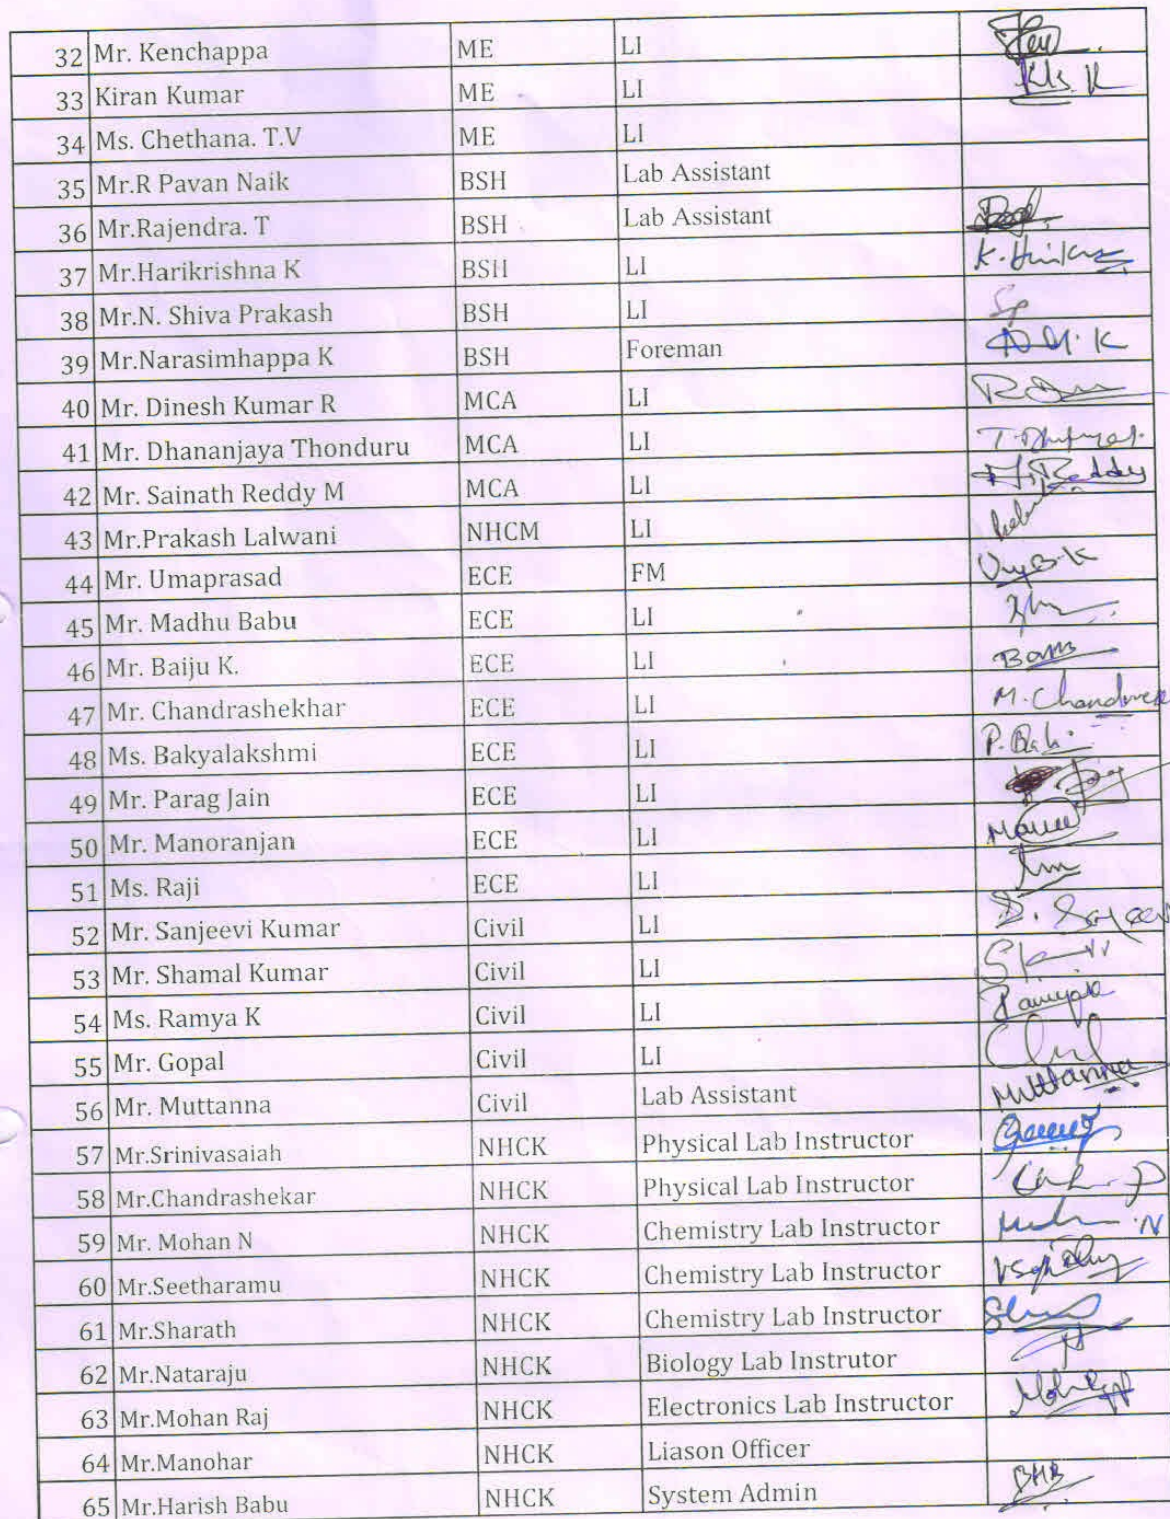 32 Mr. Kenchappa ME LI
33 Kiran Kumar ME LI
34 Ms. Chethana. T.V ME LI
35 Mr.R Pavan Naik BSH Lab Assistant
36 Mr.Rajendra. T BSH Lab Assistant
37 Mr.Harikrishna K BSH LI
38 Mr.N. Shiva Prakash BSH LI
39 Mr.Narasimhappa K BSH Foreman
40 Mr. Dinesh Kumar R MCA LI
41 Mr. Dhananjaya Thonduru MCA LI
42 Mr. Sainath Reddy M MCA LI
43 Mr.Prakash Lalwani NHCM LI
44 Mr. Umaprasad ECE FM
45 Mr. Madhu Babu ECE LI
46 Mr. Baiju K. ECE LI
47 Mr. Chandrashekhar ECE LI
48 Ms. Bakyalakshmi ECE LI
49 Mr. Parag Jain ECE LI
50 Mr. Manoranjan ECE LI
51 Ms. Raji ECE LI
52 Mr. Sanjeevi Kumar Civil LI
53 Mr. Shamal Kumar Civil LI
54 Ms. Ramya K Civil LI
55 Mr. Gopal Civil LI
56 Mr. Muttanna Civil Lab Assistant Muttanna
57 Mr.Srinivasaiah NHCK Physical Lab Instructor
58 Mr.Chandrashekar NHCK Physical Lab Instructor
59 Mr. Mohan N NHCK Chemistry Lab Instructor
60 Mr.Seetharamu NHCK Chemistry Lab Instructor
61 Mr.Sharath NHCK Chemistry Lab Instructor
62 Mr.Nataraju NHCK Biology Lab Instrutor
63 Mr.Mohan Raj NHCK Electronics Lab Instructor
64 Mr.Manohar NHCK Liason Officer
65 Mr.Harish Babu NHCK System Admin BHB